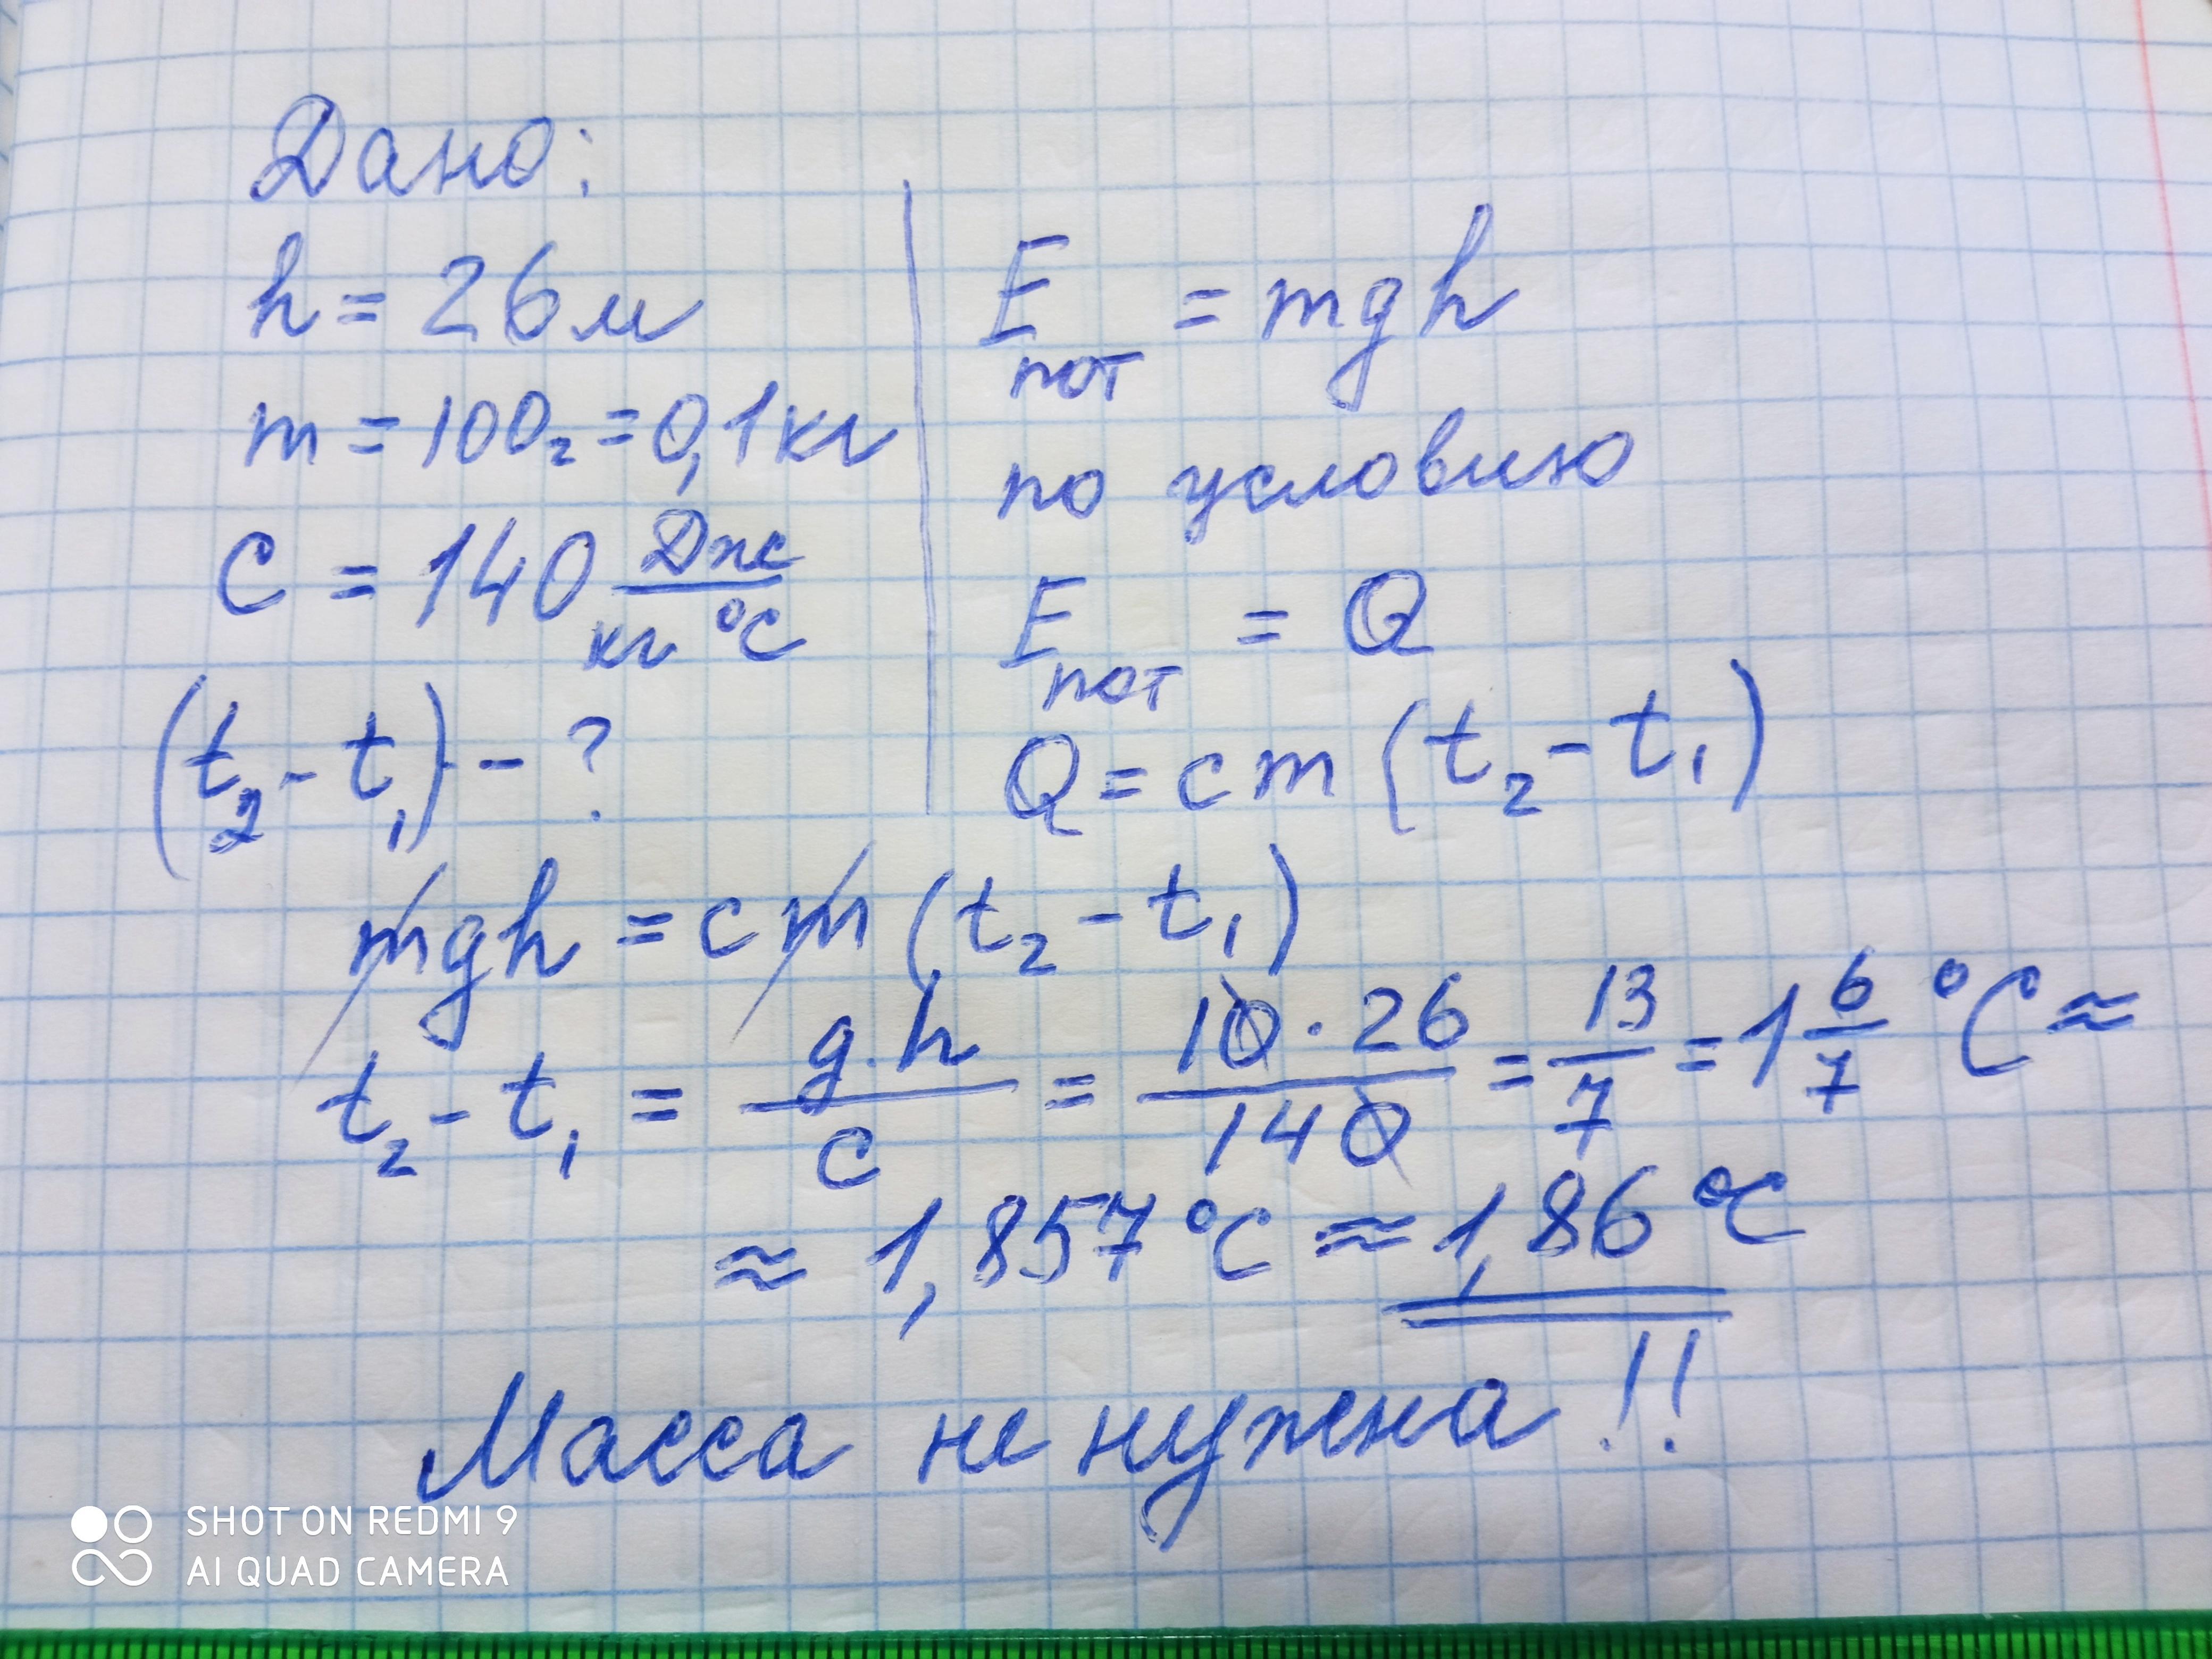 Дано:
h = 26 м
m = 100г = 0,1 кг
C = 140 Дж/кг °C
(t₂ - t₁) - ?
E пот = mgh
по условию
E пот = Q
Q = cm (t₂ - t₁)
mgh = cm (t₂ - t₁)
t₂ - t₁ = g·h/c = 10·26/140 = 13/7 = 1 6/7 °C ≈
≈ 1,857 °C ≈ 1,86 °C
Масса не нужена !!
SHOT ON REDMI 9
AI QUAD CAMERA